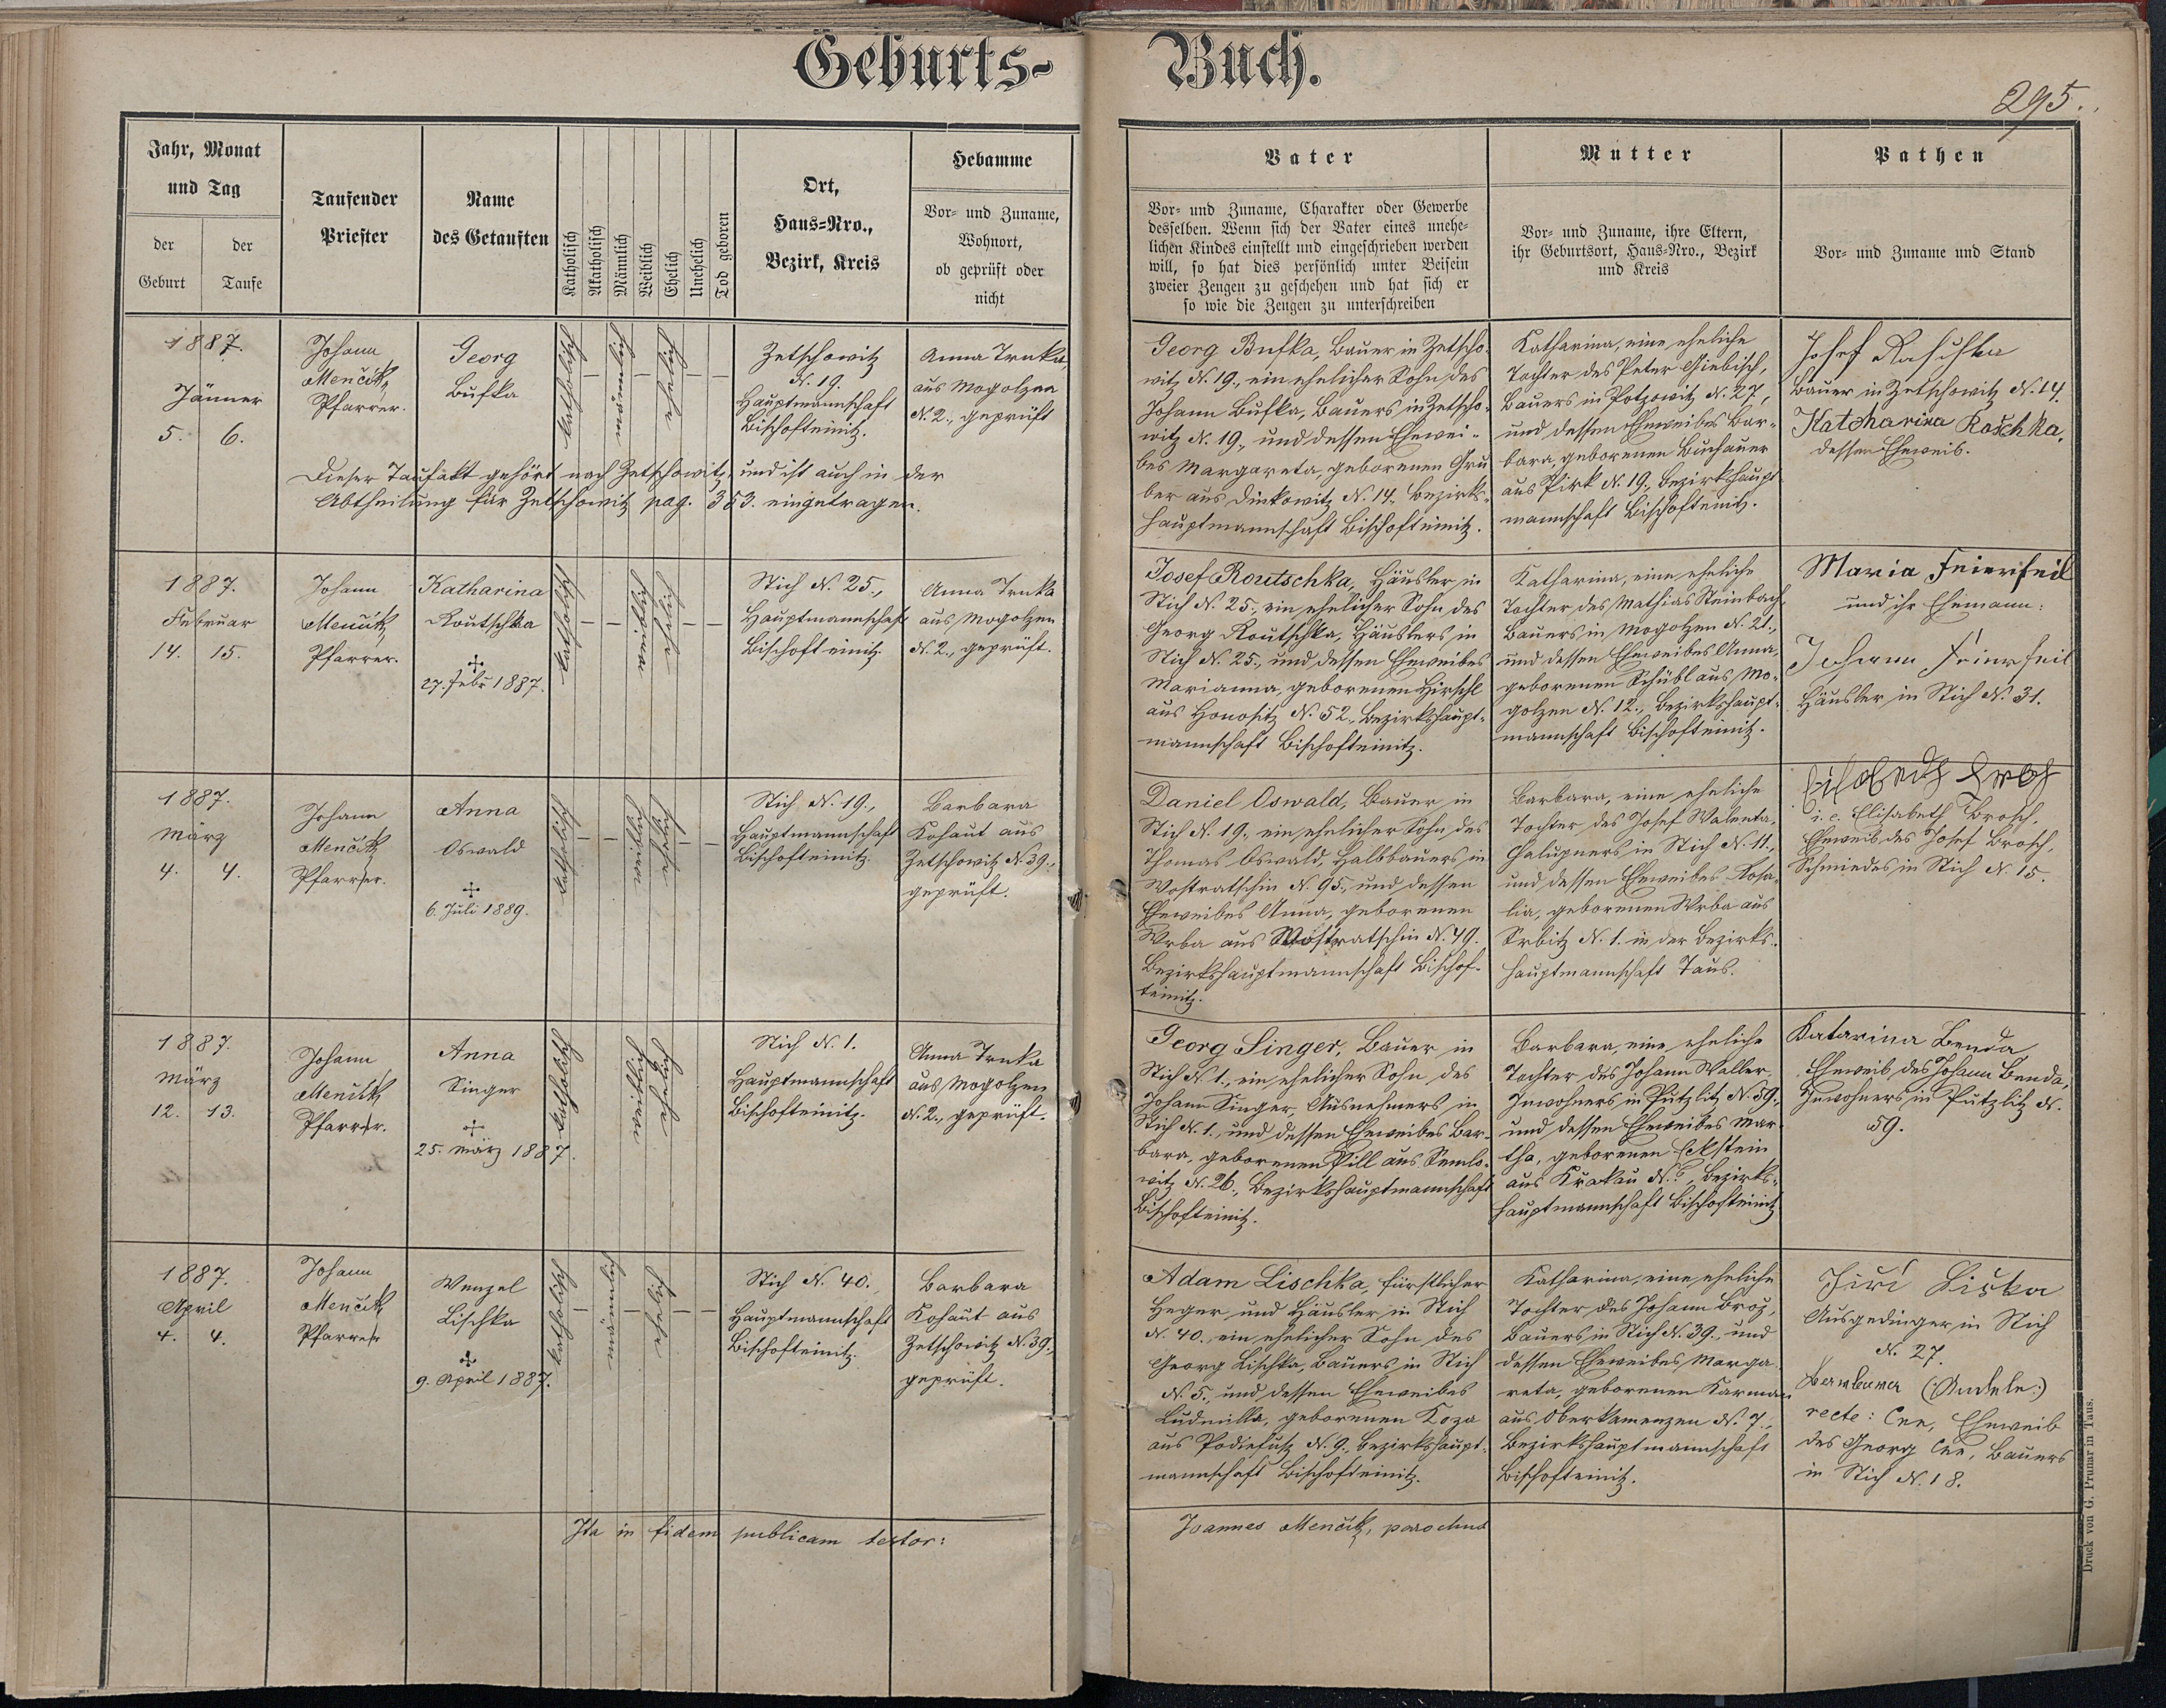 Geburts- Buch.
295.
Jahr, Monat
und Tag
der
Geburt
der
Taufe
Taufender
Priester
Name
des Getauften
Katholisch
Akatholisch
Männlich
Weiblich
Ehelich
Unehelich
Tod geboren
Ort,
Haus-Nro.,
Bezirk, Kreis
Hebamme
Vor- und Zuname,
Wohnort,
ob geprüft oder
nicht
Vater
Vor- und Zuname, Charakter oder Gewerbe
desselben. Wenn sich der Vater eines unehe-
lichen Kindes einstellt und eingeschrieben werden
will, so hat dies persönlich unter Beisein
zweier Zeugen zu geschehen und hat sich er
so wie die Zeugen zu unterschreiben
Mutter
Vor- und Zuname, ihre Eltern,
ihr Geburtsort, Haus-Nro., Bezirk
und Kreis
Pathen
Vor- und Zuname und Stand
1887.
Jänner
5. 6.
Johann
Menčik,
Pfarrer.
Georg
Bufka
katholisch
—
männlich
—
ehelich
—
—
Zetschowitz
N. 19.
Hauptmannschaft
Bischofteinitz.
Anna Trnka,
aus Mogolzen
N. 2., geprüft
Dieser Taufakt gehört nach Zetschowitz und ist auch in der
Abtheilung für Zetschowitz pag. 353. eingetragen.
Georg Bufka, Bauer in Zetscho-
witz N. 19., ein ehelicher Sohn des
Johann Bufka, Bauers in Zetscho-
witz N. 19., und dessen Ehewei-
bes Margareta, geborenen Gru
ber aus Dinkowitz N. 14. Bezirks-
hauptmannschaft Bischofteinitz.
Katharina, eine eheliche
Tochter des Peter Giebisch,
Bauers in Potzowitz N. 27,
und dessen Eheweibes Bar-
bara, geborenen Buchauer
aus Pirk N. 19., Bezirkshaupt
mannschaft Bischofteinitz.
Josef Raschka
Bauer in Zetschowitz N. 14.
Katharina Raschka,
dessen Eheweib.
1887.
Februar
14. 15.
Johann
Menčik,
Pfarrer.
Katharina
Routschka
27. Febr 1887.
katholisch
—
—
weiblich
ehelich
—
—
Stich N. 25.,
Hauptmannschaft
Bischofteinitz.
Anna Trnka
aus Mogolzen
N. 2., geprüft.
Josef Routschka, Häusler in
Stich N. 25., ein ehelicher Sohn des
Georg Routschka, Häuslers in
Stich N. 25., und dessen Eheweibes
Marianna, geborenen Hirschl
aus Honositz N. 52., Bezirkshaupt-
mannschaft Bischofteinitz.
Katharina, eine eheliche
Tochter des Mathias Steinbach,
Bauers in Mogolzen N. 21.,
und dessen Eheweibes Anna,
geborenen Schübl aus Mo-
golzen N. 12., Bezirkshaupt-
mannschaft Bischofteinitz.
Maria Feierfeil
und ihr Ehemann:
Johann Feierfeil
Häusler in Stich N. 31.
1887.
März
4. 4.
Johann
Menčik,
Pfarrer.
Anna
Oswald
6. Juli 1889.
katholisch
—
—
weiblich
ehelich
—
—
Stich N. 19.,
Hauptmannschaft
Bischofteinitz.
Barbara
Kohaut aus
Zetschowitz N 39.,
geprüft.
Daniel Oswald, Bauer in
Stich N. 19., ein ehelicher Sohn des
Thomas Oswald, Halbbauers in
Wostratschin N. 95., und dessen
Eheweibes Anna, geborenen
Wrba aus Wostratschin N. 49.
Bezirkshauptmannschaft Bischof-
teinitz.
Barbara, eine eheliche
Tochter des Josef Walenta,
Chalupners in Stich N. 11.,
und dessen Eheweibes Rosa-
lia, geborenen Wrba aus
Srbitz N. 1. in der Bezirks-
hauptmannschaft Taus.
i. e. Elisabeth Brosch,
Eheweib des Josef Brosch,
Schmiedes in Stich N. 15.
1887.
März
12. 13.
Johann
Menčik,
Pfarrer.
Anna
Singer
25. März 1887.
katholisch
weiblich
ehelich
Stich N. 1.
Hauptmannschaft
Bischofteinitz.
Anna Trnka
aus Mogolzen
N. 2., geprüft.
Georg Singer, Bauer in
Stich N. 1., ein ehelicher Sohn des
Johann Singer, Ausnehmers in
Stich N. 1., und dessen Eheweibes Bar-
bara, geborenen Pill aus Semlo-
witz N. 26., Bezirkshauptmannschaft
Bischofteinitz.
Barbara, eine eheliche
Tochter des Johann Weller,
Inwohners in Putzlitz N. 59.,
und dessen Eheweibes Mar-
tha, geborenen Eckstein
aus Krakau N. ?, Bezirks-
hauptmannschaft Bischofteinitz
Katarina Benda
Eheweib des Johann Benda,
Inwohners in Putzlitz N.
59.
1887.
April
4. 4.
Johann
Menčik,
Pfarrer
Wenzel
Lischka
9. April 1887.
katholisch
—
männlich
—
ehelich
—
—
Stich N. 40.
Hauptmannschaft
Bischofteinitz.
Barbara
Kohaut aus
Zetschowitz N. 39.,
geprüft.
Adam Lischka, fürstlicher
Heger und Häusler in Stich
N. 40., ein ehelicher Sohn des
Georg Lischka, Bauers in Stich
N. 5., und dessen Eheweibes
Ludmilla, geborenen Koza
aus Podiefus N. 9., Bezirkshaupt-
mannschaft Bischofteinitz.
Katharina, eine eheliche
Tochter des Johann Broz,
Bauers in Stich N. 39., und
dessen Eheweibes Marga-
reta, geborenen Karman
aus Oberkamenzen N. 7.,
Bezirkshauptmannschaft
Bischofteinitz.
Jiří Liška
Ausgedinger in Stich
N. 27.
recte: Cee, Eheweib
des Georg Cee, Bauers
in Stich N. 18.
Ita in fidem publicam testor:
Joannes Menčik, parochus
Druck von G. Prunar in Taus.